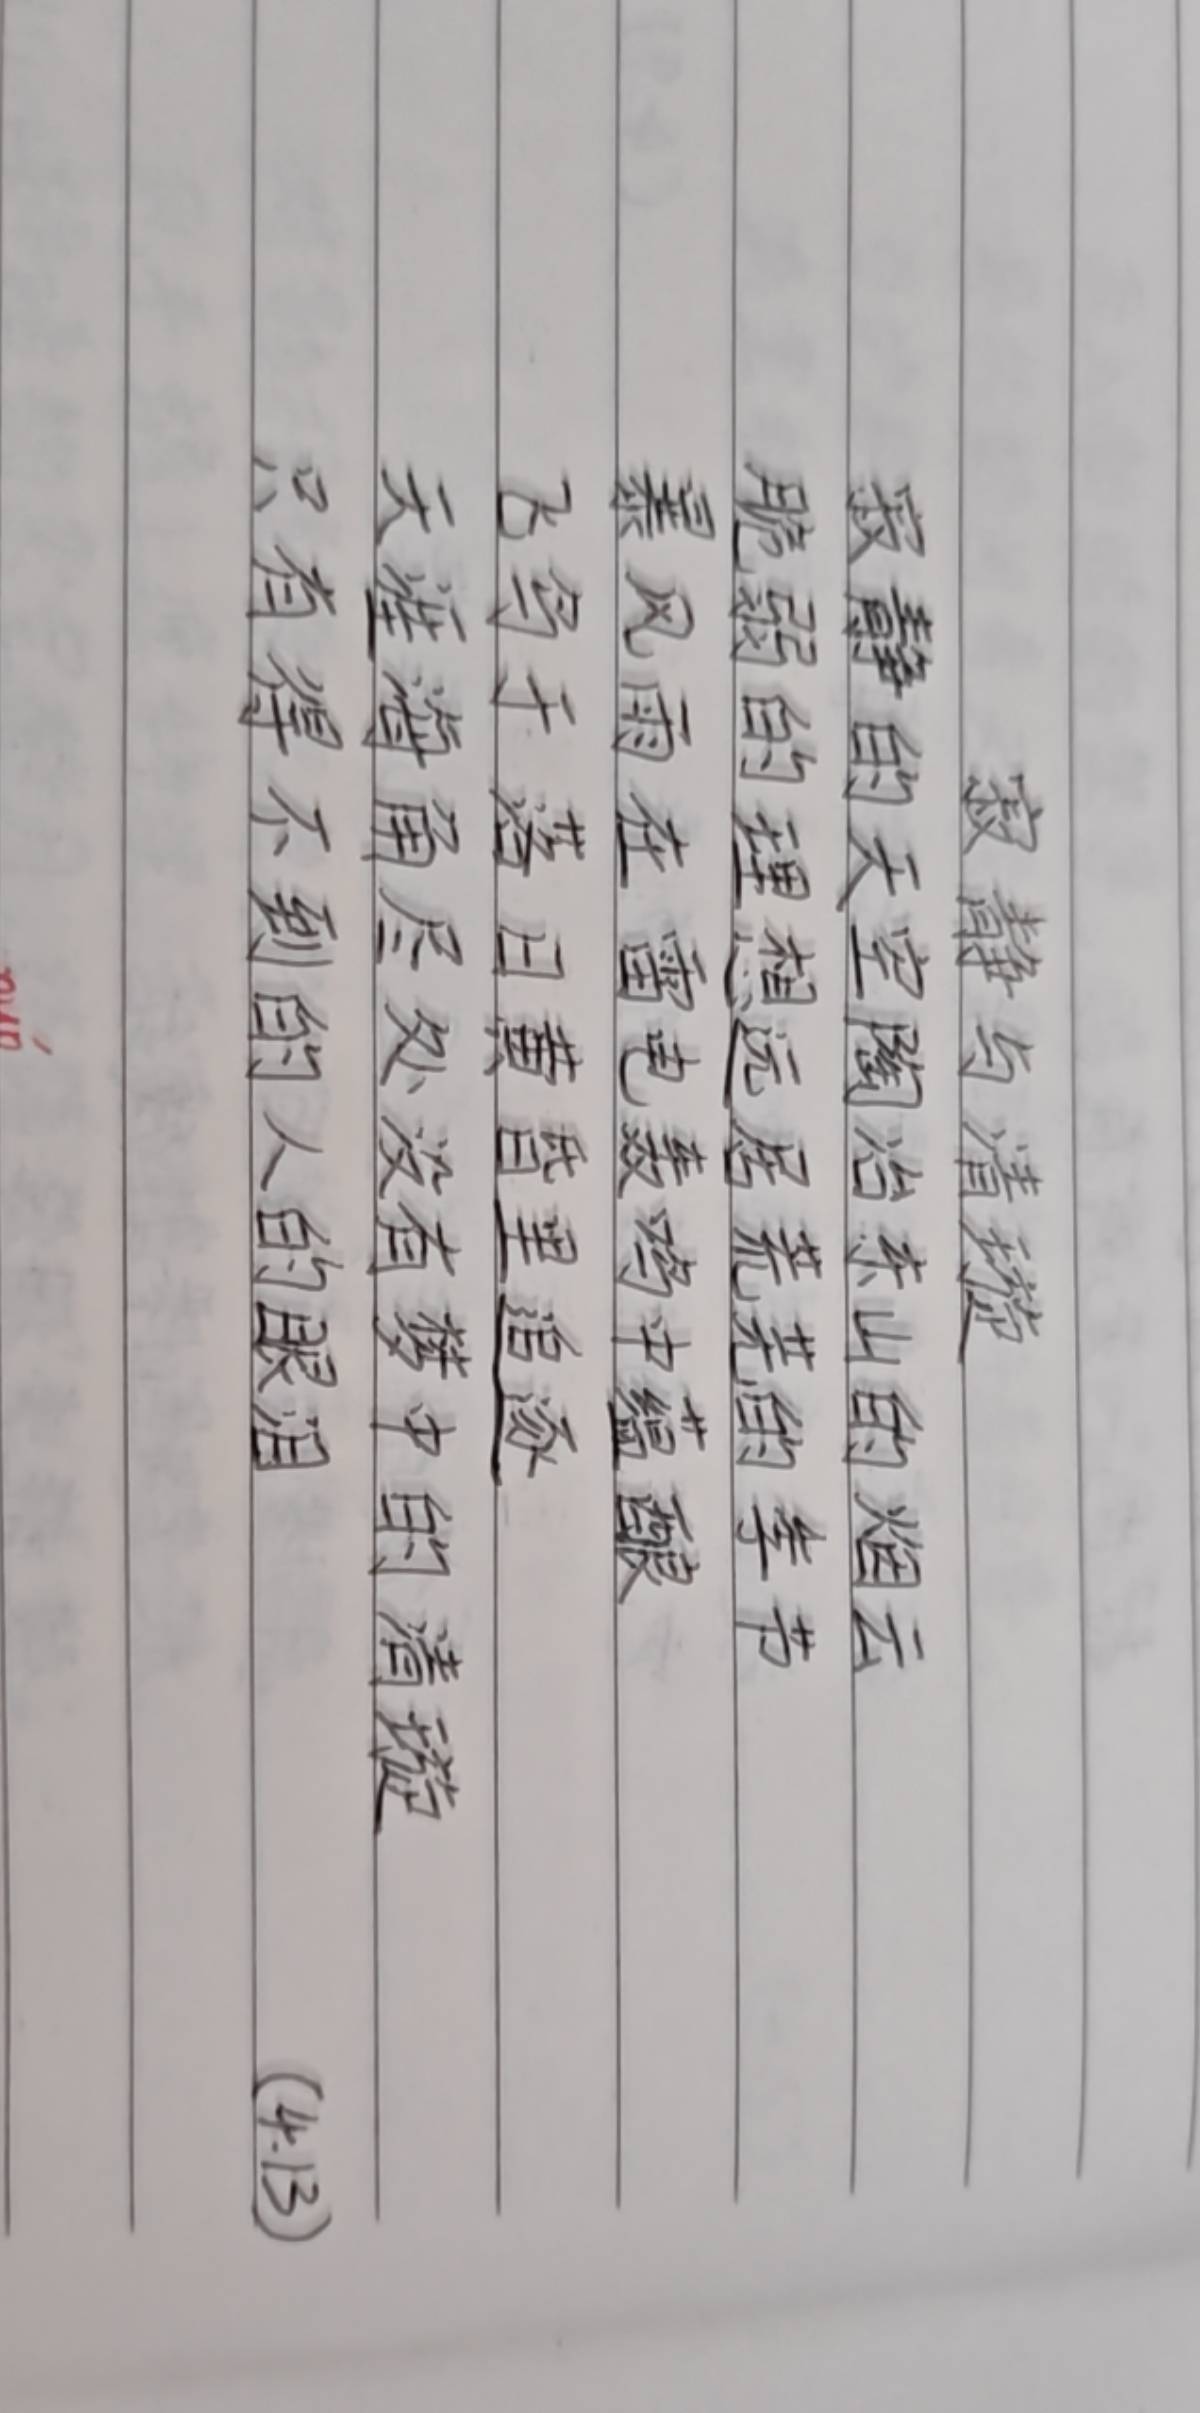 寂静与清璇
寂静的天空陶冶东山的烟云
脆弱的理想远居荒芜的季节
暴风雨在雷电轰鸣中蕴酿
飞鸟于落日黄昏里追逐
天涯海角尽处没有梦中的清璇
只有得不到的人的眼泪
(4.13)